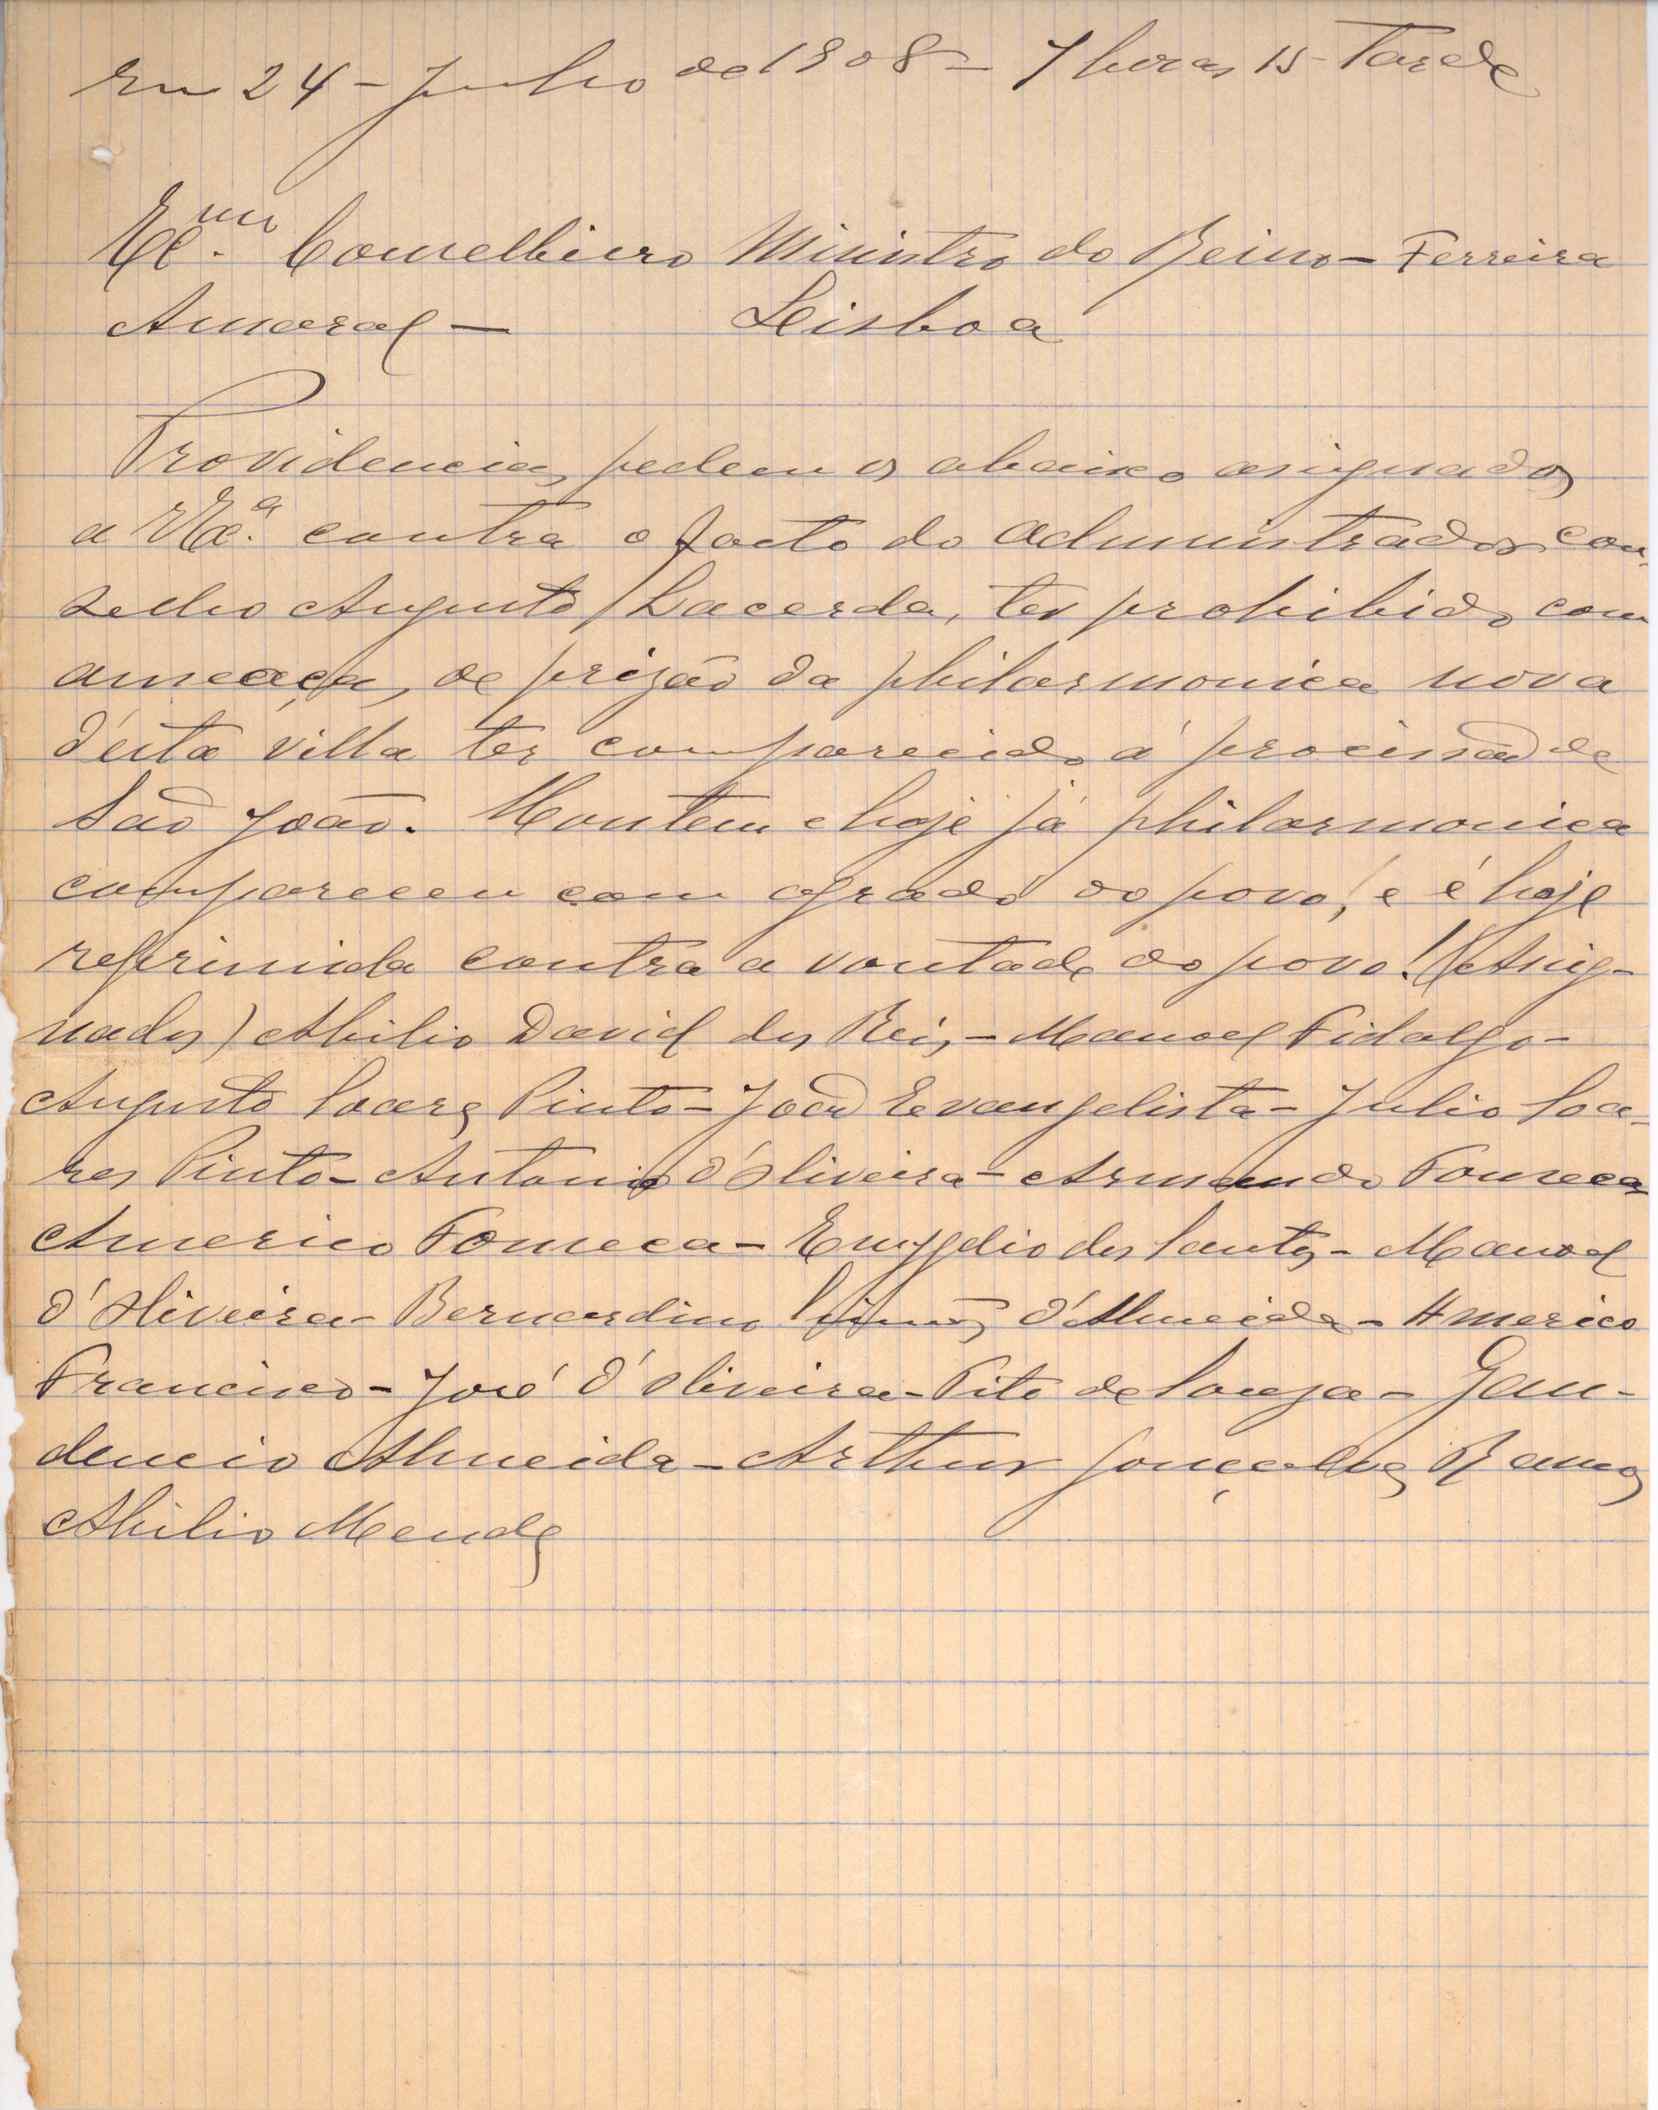 Em 24 - Junho de 1908 - 7 horas 15 Tarde
Ex.mo Conselheiro Ministro do Reino - Ferreira
Amaral - Lisboa
Providencias pedem os abaixo asignados
a V Ex.a contra o facto do administrador con-
selho Augusto Lacerda, ter prohibido com
ameaças, de prizão da philarmonica nova
d'esta villa ter comparecido á procissão de
São João. Hontem e hoje já philarmonica
compareceu com agrado do povo, e é hoje
reprimida contra a vontade do povo! (Asig-
nados) Abilio David dos Reis - Manoel Fidalgo -
Augusto Soares Pinto - João Evangelista - Julio Soa-
res Pinto - Antonio d'Oliveira - Armando Fonseca
Americo Fonseca - Emygdio dos Santos - Manoel
d'Oliveira - Bernardino d'Almeida - Americo
Francisco - José d'Oliveira - Tito de Souza - Gau-
dencio Almeida - Arthur Gonçalves Ramos
Abilio Mendes